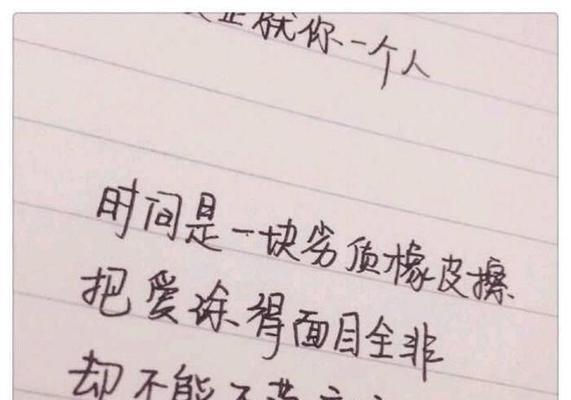 就你一个人
时间是一块劣质橡皮擦
把爱涂得面目全非
却不能不